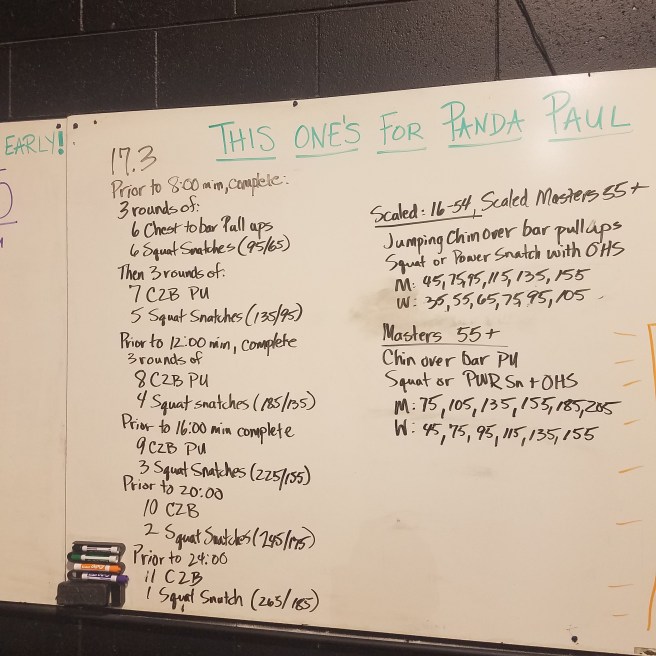 EARLY!
THIS ONE'S FOR PANDA PAUL
17.3
Prior to 8:00 min, complete:
3 rounds of:
6 Chest to bar Pull ups
6 Squat Snatches (95/65)
Then 3 rounds of:
7 C2B PU
5 Squat Snatches (135/95)
Prior to 12:00 min, complete
3 rounds of
8 C2B PU
4 Squat snatches (185/135)
Prior to 16:00 min complete
9 C2B PU
3 Squat Snatches (225/155)
Prior to 20:00
10 C2B
2 Squat Snatches (245/175)
Prior to 24:00
11 C2B
1 Squat Snatch (265/185)
Scaled: 16-54, Scaled Masters 55+
Jumping Chin over bar pull ups
Squat or Power Snatch with OHS
M: 45, 75, 95, 115, 135, 155
W: 35, 55, 65, 75, 95, 105
Masters 55+
Chin over bar PU
Squat or PWR Sn + OHS
M: 75, 105, 135, 155, 185, 205
W: 45, 75, 95, 115, 135, 155